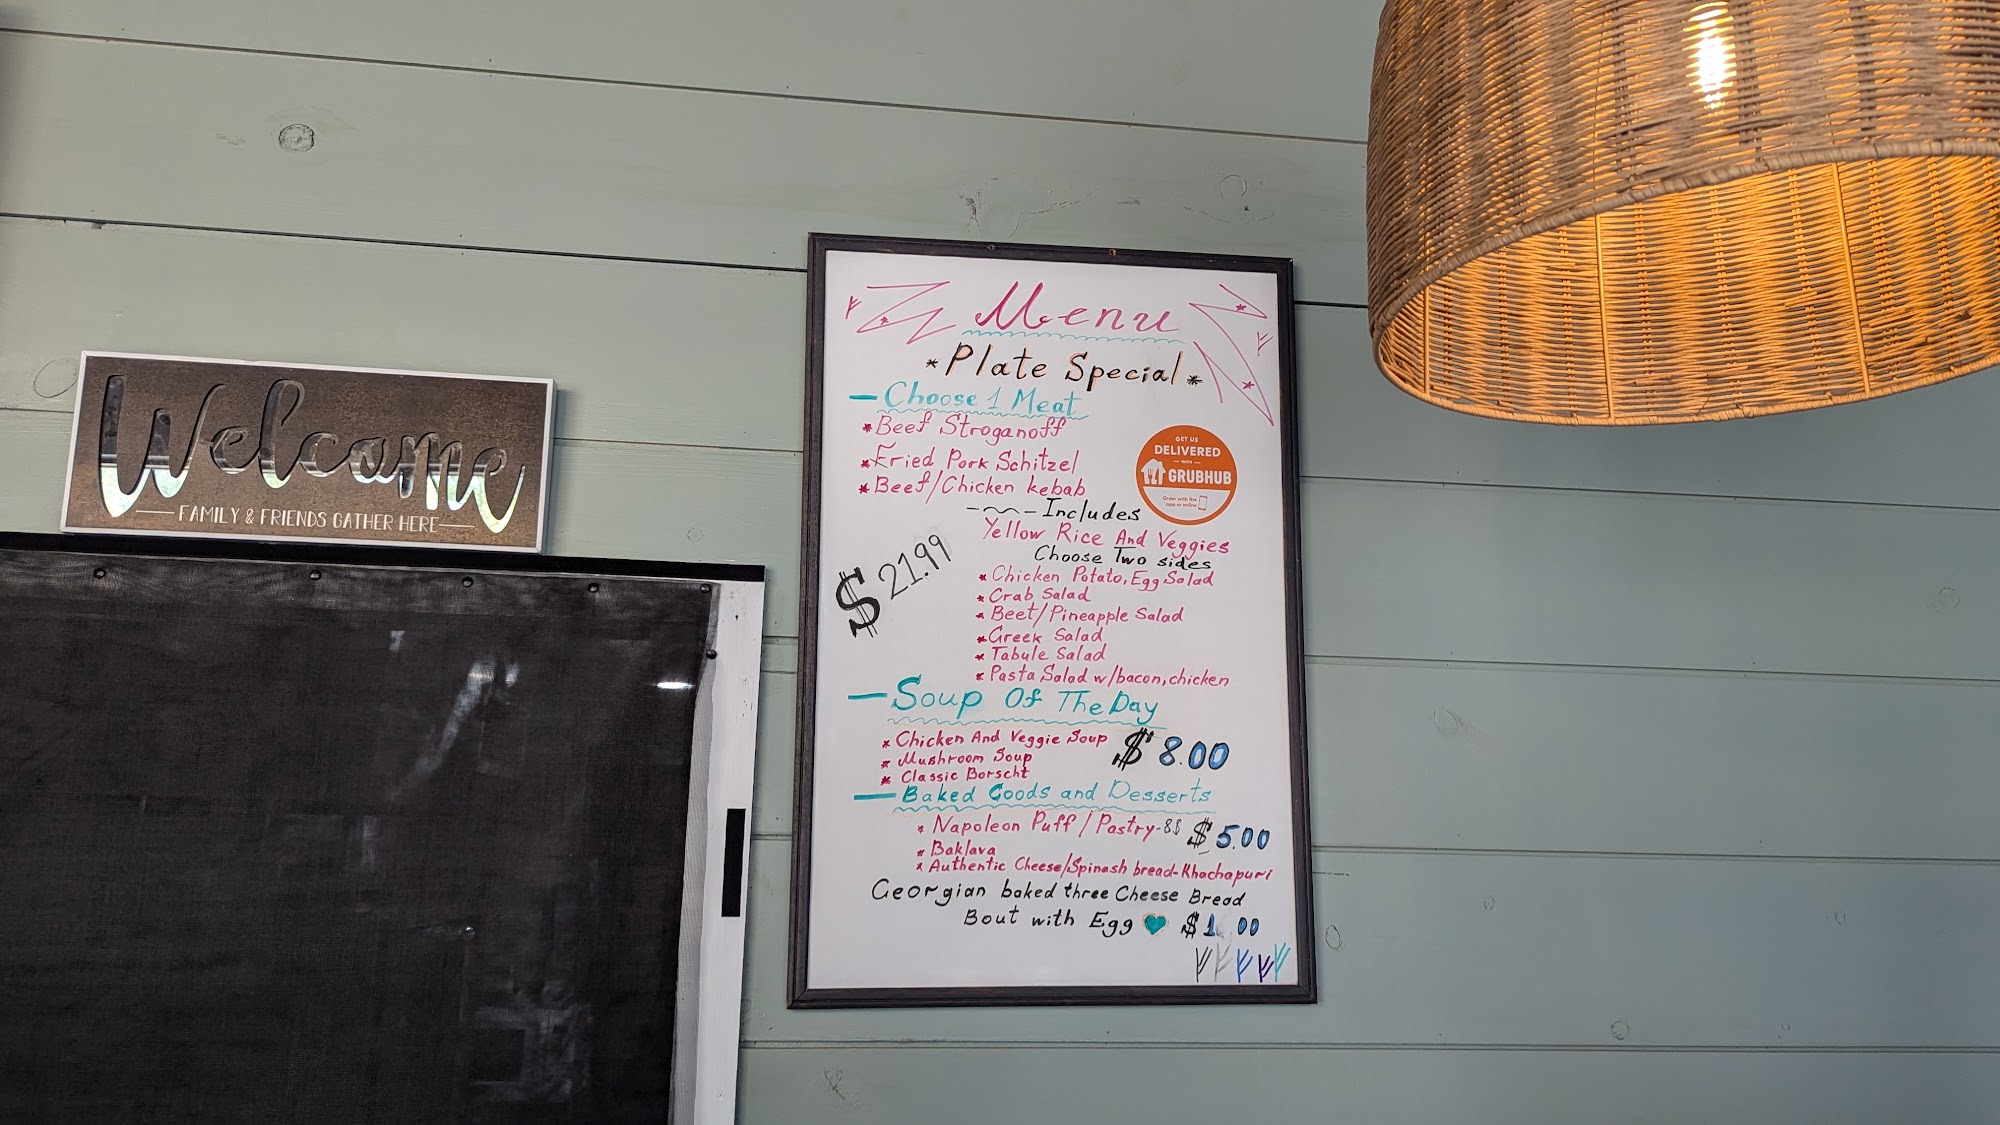 Welcome
FAMILY & FRIENDS GATHER HERE
Menu
*Plate Special*
— Choose 1 Meat
*Beef Stroganoff
*Fried Pork Schitzel
*Beef/Chicken kebab
GET US
DELIVERED
— WITH —
GRUBHUB
Order with the
app or online
Includes
Yellow Rice And Veggies
Choose Two sides
$21.99
*Chicken Potato, Egg Salad
*Crab Salad
*Beet/Pineapple Salad
*Greek Salad
*Tabule Salad
*Pasta Salad w/bacon, chicken
— Soup Of The Day
*Chicken And Veggie Soup $8.00
*Mushroom Soup
*Classic Borscht
— Baked Goods and Desserts
*Napoleon Puff / Pastry-8$ $5.00
*Baklava
*Authentic Cheese/Spinash bread-Khachapuri
Georgian baked three Cheese Bread
Bout with Egg